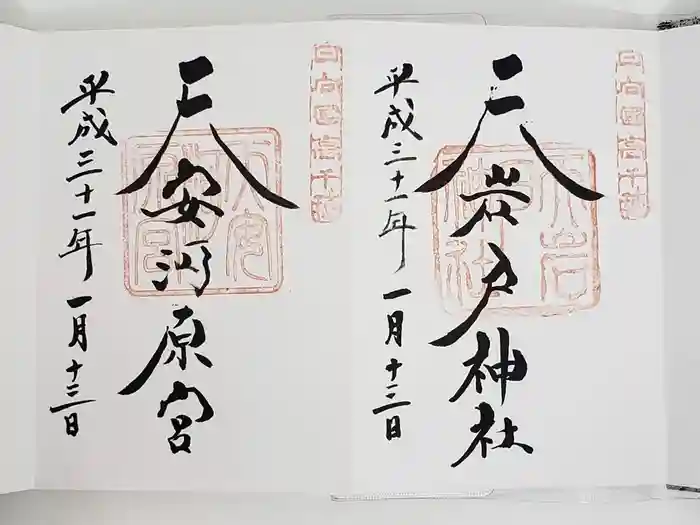 日向国高千穂
天岩戸神社
平成三十一年一月十三日
日向国高千穂
天安河原宮
平成三十一年一月十三日